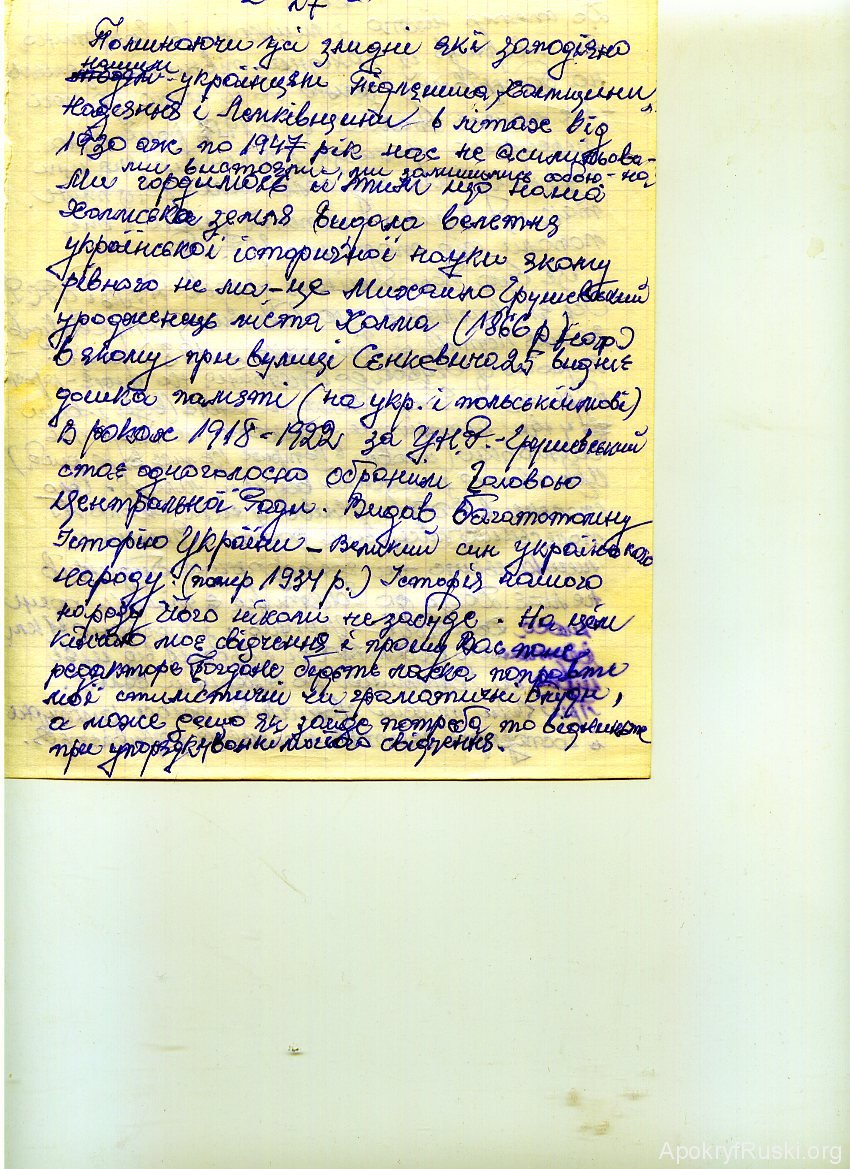 27
Поминаючи усі злидні які заподіяно
нашим
українцям Підляшша, Холмщини,
Надсяння і Лемківщини в літах від
1930 аж по 1947 рік нас не асимільова-
ми вистояли, ми залишились собою - но
Ми гордимось й тим що наша
Холмська земля видала велетня
української історичної науки якому
рівного не ма - це Михайло Грушевський
уродженець міста Холма (1866 р нар.)
в якому при вулиці Сєнкевича 25 видніє
дошка памяті (на укр. і польській мові)
В роках 1918-1922 за У.Н.Р. - Грушевський
стає одноголосно обраним Головою
Центральної Ради. Видав багатотомну
Історію України - Великий син українського
народу. (помер 1934 р.) Історія нашого
народу його ніколи не забуде. На цім
кінчаю моє свідчення і прошу Вас, пане
редакторе Богдане будьте ласка поправте
мої стилістичні чи граматичні блуди,
а може дещо як зайде потреба, то відкиньте
при упорядкуванні мойого свідчення.
ApokryfRuski.org